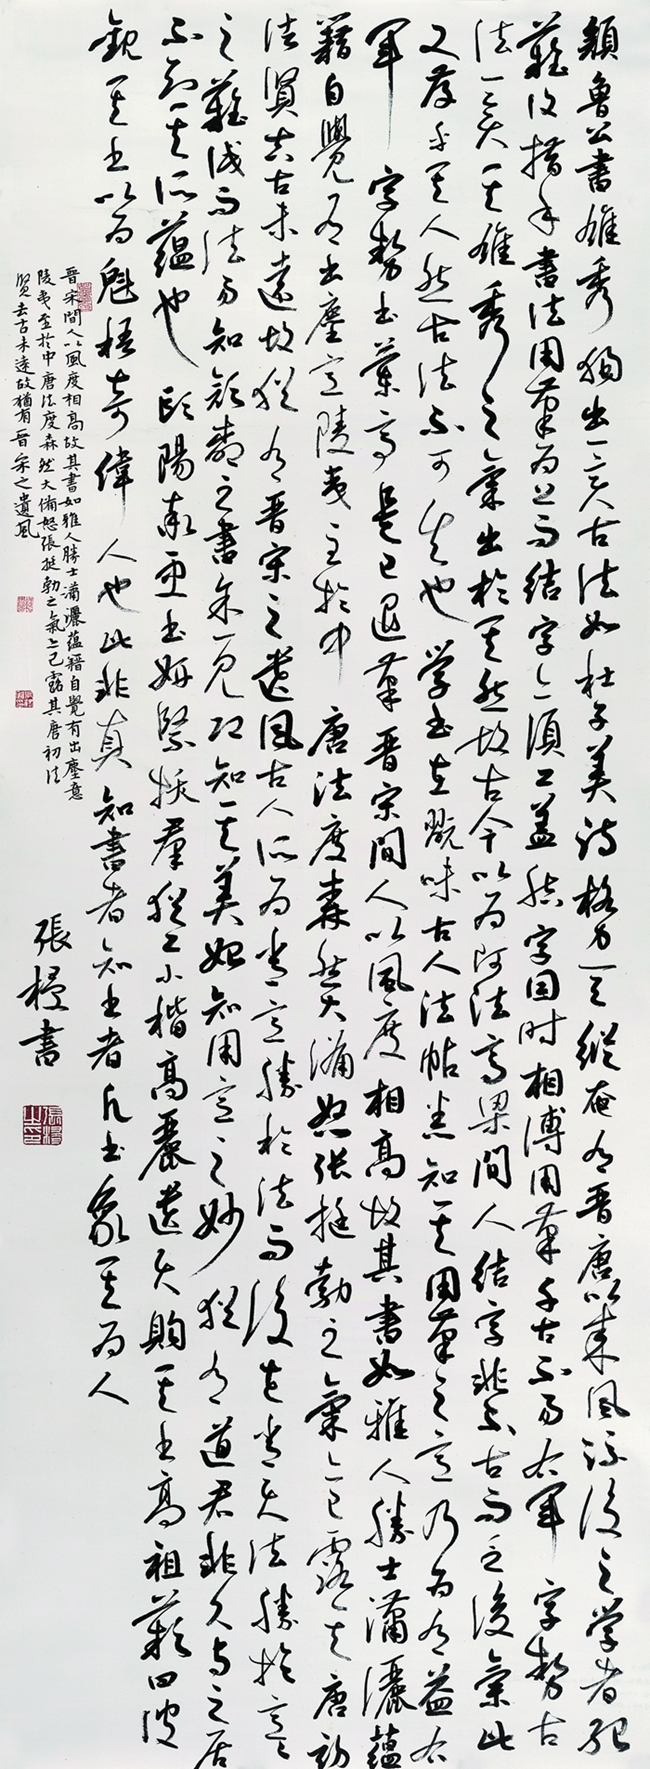 顏魯公書雄秀獨出一變古法如杜子美詩格力天縱奄有晉唐以來風流後之學者殆
難復措手書法用筆為上而結字亦須工蓋結字因時相傳用筆千古不易右軍字勢古
法一變其雄秀之氣出於天然故古今以為師法齊梁間人結字非不古而乏俊氣此
又存乎其人然古法不可失也學書在玩味古人法帖悉知其用筆之意乃為有益右
軍字勢書蘭亭是已退筆晉宋間人以風度相高故其書如雅人勝士瀟灑蘊
籍自覺有出塵意陵夷至於中唐法度森然大備怒張挺勃之氣亦已露其唐初
法賢去古未遠故猶有晉宋之遺風古人所為書意勝於法而後世書失法勝於意
之難識而法易知之書余一見知其美始知用意之妙猶有道君非久與之居
不知其所蘊也歐陽率更書妍緊拔群猶工小楷高麗遣使購其書高祖歎曰彼
觀其書以為魁梧奇偉人也此非真知書者知書者凡書象其為人
晉宋間人以風度相高故其書如雅人勝士瀟灑蘊籍自覺有出塵意
陵夷至於中唐法度森然大備怒張挺勃之氣亦已露其唐初法
賢去古未遠故猶有晉宋之遺風
張書